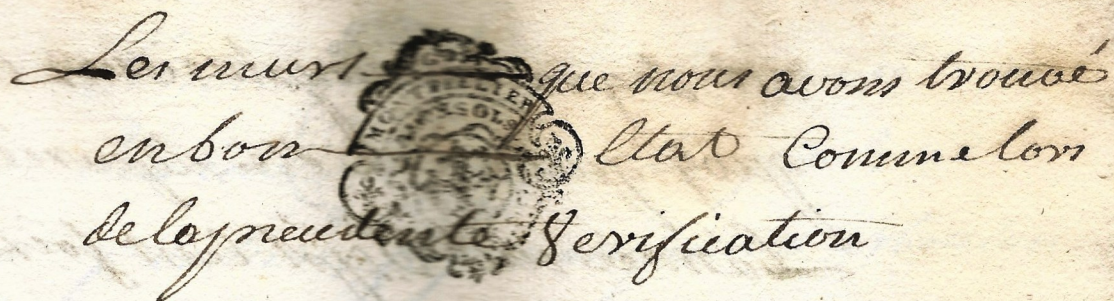 Les murs que nous avons trouvé
en bon Etat Comme lors
de la precedente Verification
MONTPELLIER